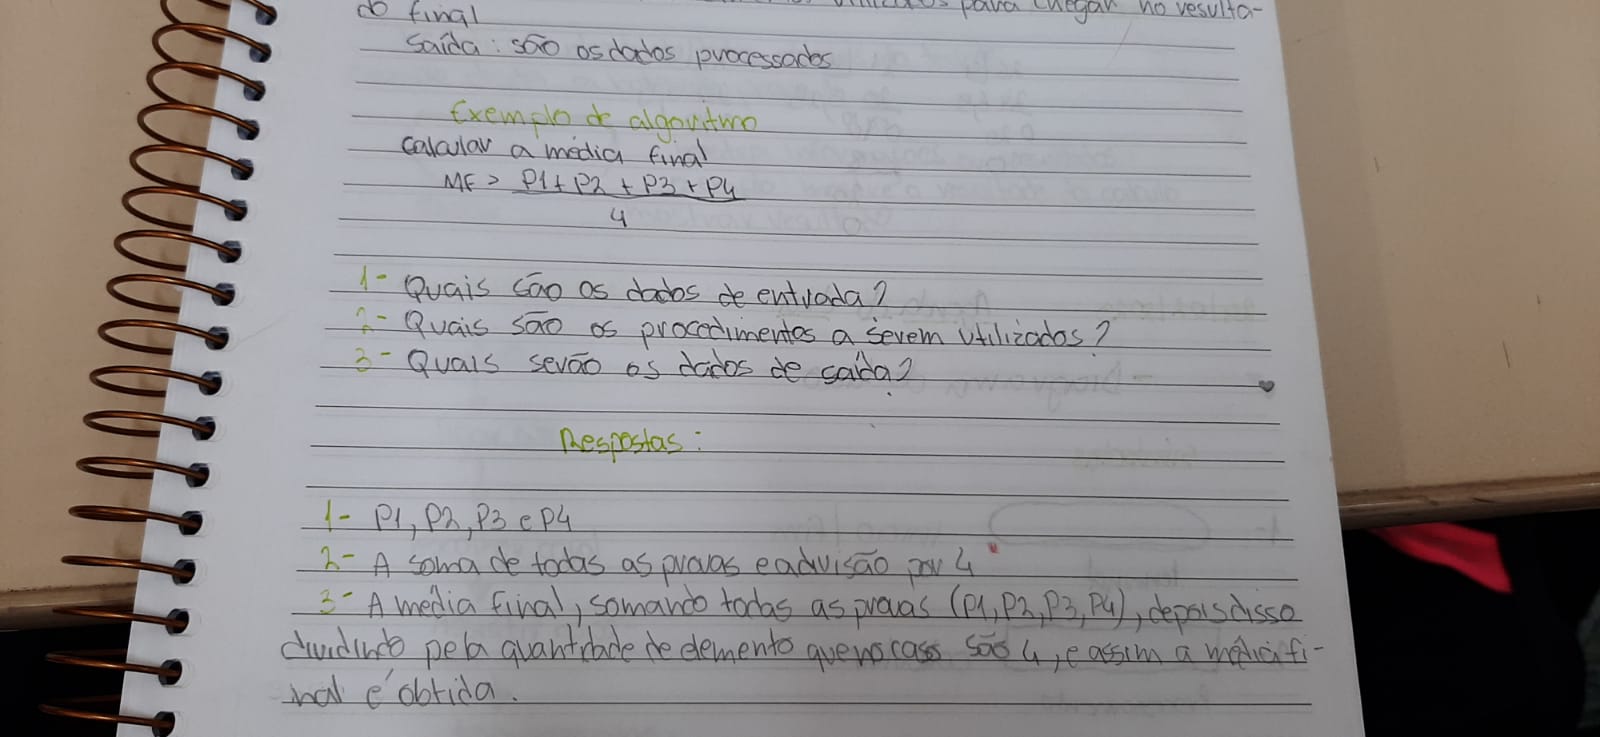 para chegar no resulta-
do final
Saída: são os dados processados
Exemplo de algoritmo
Calcular a média final
MF > P1 + P2 + P3 + P4
4
1- Quais são os dados de entrada?
2- Quais são os procedimentos a serem utilizados?
3- Quais serão os dados de saída?
Respostas:
1- P1, P2, P3 e P4
2- A soma de todas as provas e a divisão por 4
3- A média final, somando todas as provas (P1, P2, P3, P4), depois disso
dividindo pela quantidade de elemento que no caso são 4, e assim a média fi-
nal é obtida.